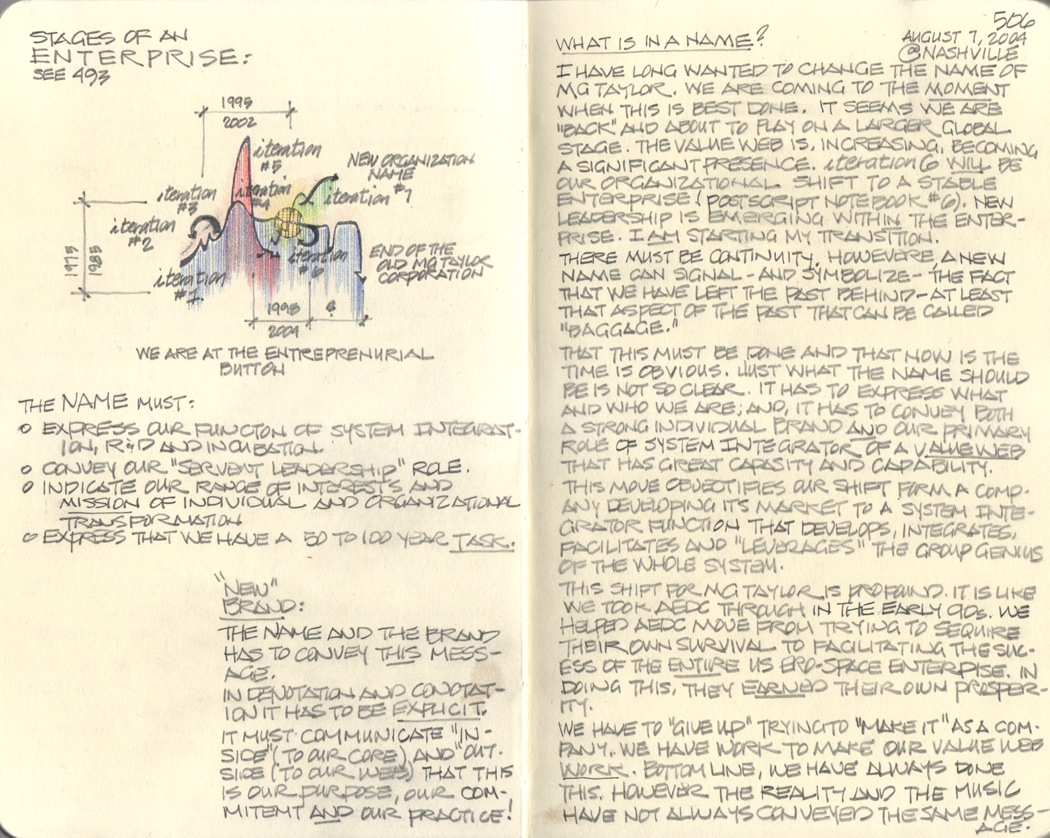 STAGES OF AN
ENTERPRISE:
SEE 493
1995
2002
iteration
#5
NEW ORGANIZATION
NAME
iteration
#3
iteration
#4
iteration #7
iteration
#2
1975
1985
iteration
#6
END OF THE
OLD MG TAYLOR
CORPORATION
iteration
#1
1998
2004
WE ARE AT THE ENTREPRENURIAL
BUTTON
THE NAME MUST:
o EXPRESS OUR FUNCTON OF SYSTEM INTEGRAT-
ION, R&D AND INCUBATION.
o CONVEY OUR "SERVENT LEADERSHIP" ROLE.
o INDICATE OUR RANGE OF INTEREST'S AND
MISSION OF INDIVIDUAL AND ORGANIZATIONAL
TRANSFORMATION
o EXPRESS THAT WE HAVE A 50 TO 100 YEAR TASK.
"NEW"
BRAND:
THE NAME AND THE BRAND
HAS TO CONVEY THIS MESS-
AGE.
IN DENOTATION AND CONOTAT-
ION IT HAS TO BE EXPLICIT.
IT MUST COMMUNICATE "IN-
SIDE" (TO OUR CORE) AND "OUT-
SIDE (TO OUR WEB) THAT THIS
IS OUR PURPOSE, OUR COM-
MITEMT AND OUR PRACTICE!
506
AUGUST 7, 2004
@NASHVILLE
WHAT IS IN A NAME?
I HAVE LONG WANTED TO CHANGE THE NAME OF
MG TAYLOR. WE ARE COMING TO THE MOMENT
WHEN THIS IS BEST DONE. IT SEEMS WE ARE
"BACK" AND ABOUT TO PLAY ON A LARGER GLOBAL
STAGE. THE VALUE WEB IS, INCREASING, BECOMING
A SIGNIFICANT PRESENCE. iteration 6 WILL BE
OUR ORGANIZATIONAL SHIFT TO A STABLE
ENTERPRISE (POSTSCRIPT NOTEBOOK #6). NEW
LEADERSHIP IS EMERGING WITHIN THE ENTER-
PRISE. I AM STARTING MY TRANSITION.
THERE MUST BE CONTINUITY, HOWEVERE A NEW
NAME CAN SIGNAL - AND SYMBOLIZE - THE FACT
THAT WE HAVE LEFT THE PAST BEHIND - AT LEAST
THAT ASPECT OF THE PAST THAT CAN BE CALLED
"BAGGAGE."
THAT THIS MUST BE DONE AND THAT NOW IS THE
TIME IS OBVIOUS. JUST WHAT THE NAME SHOULD
BE IS NOT SO CLEAR. IT HAS TO EXPRESS WHAT
AND WHO WE ARE; AND, IT HAS TO CONVEY BOTH
A STRONG INDIVIDUAL BRAND AND OUR PRIMARY
ROLE OF SYSTEM INTEGRATOR OF A VALUE WEB
THAT HAS GREAT CAPASITY AND CAPABILITY.
THIS MOVE OBJECTIFIES OUR SHIFT FORM A COMP-
ANY DEVELOPING IT'S MARKET TO A SYSTEM INTE-
GRATOR FUNCTION THAT DEVELOPS, INTEGRATES,
FACILITATES AND "LEVERAGES" THE GROUP GENIUS
OF THE WHOLE SYSTEM.
THIS SHIFT FOR MG TAYLOR IS PROFOUND. IT IS LIKE
WE TOOK AEDC THROUGH IN THE EARLY 90s. WE
HELPED AEDC MOVE FROM TRYING TO SEQUIRE
THEIR OWN SURVIVAL TO FACILITATING THE SUC-
ESS OF THE ENTIRE US ERO-SPACE ENTERPRISE. IN
DOING THIS, THEY EARNED THEIR OWN PROSPER-
ITY.
WE HAVE TO "GIVE UP" TRYING TO "MAKE IT" AS A COM-
PANY. WE HAVE WORK TO MAKE OUR VALUE WEB
WORK. BOTTOM LINE, WE HAVE ALWAYS DONE
THIS. HOWEVER THE REALITY AND THE MUSIC
HAVE NOT ALWAYS CONVEYED THE SAME MESS-
AGE.